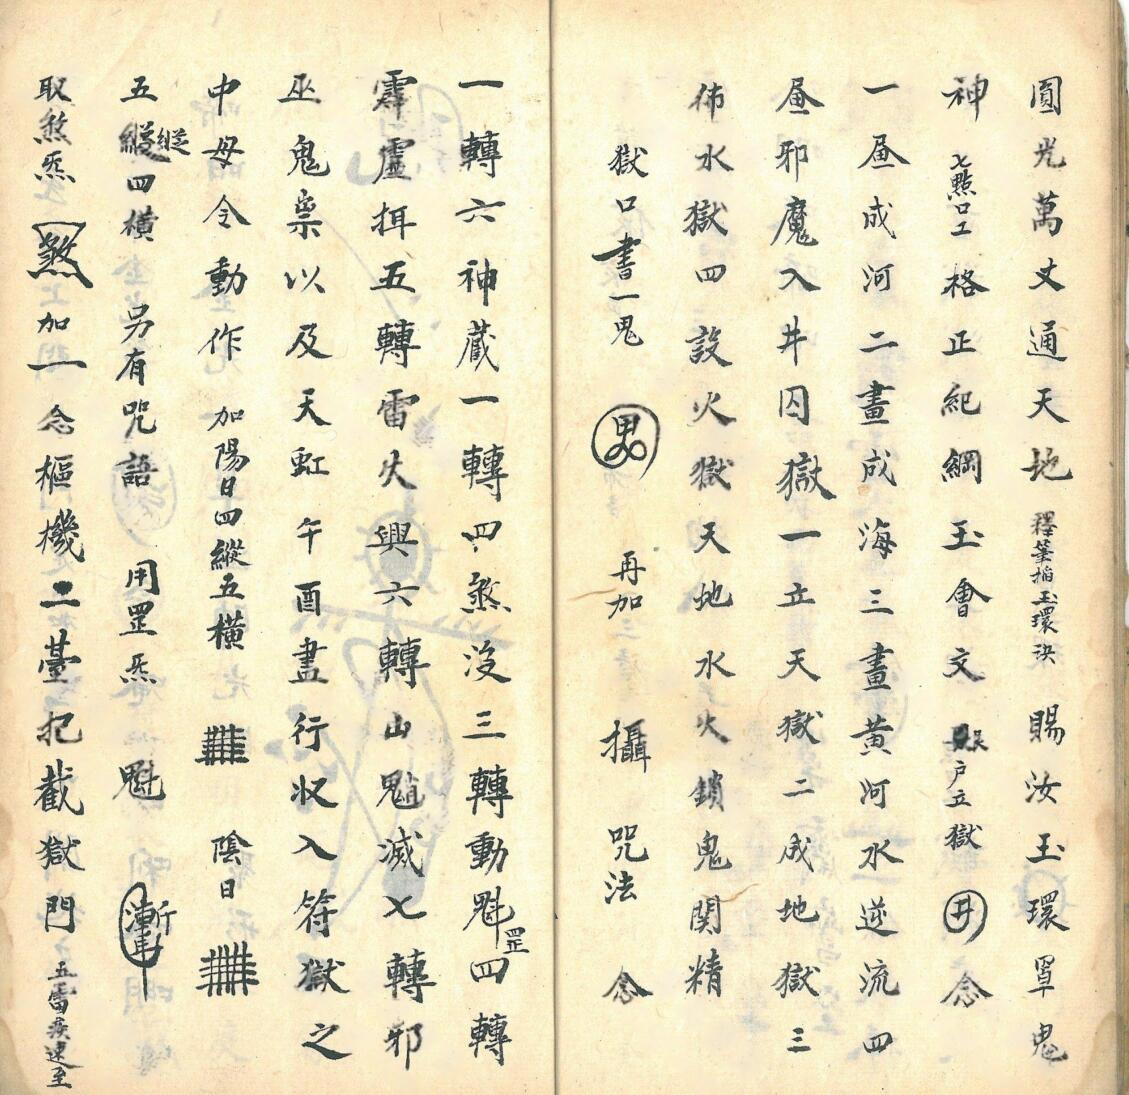 圓光萬丈通天地 釋筆掐玉環訣 賜汝玉環罩鬼
神 七點口工 格正紀綱玉會文 户立獄 井 念
一画成河二畫成海三畫黄河水逆流四
画邪魔入井囚獄一立天獄二成地獄三
佈水獄四設火獄天地水火鎖鬼関精
獄口書一鬼 再加 攝 咒法 念
一轉六神藏一轉四煞沒三轉動魁罡四轉
霹靂揖五轉雷火興六轉山魈滅七轉邪
巫鬼祟以及天虹午酉盡行收入符獄之
中毋令動作 加陽日四縱五橫 陰日
五縱四横 另有咒語 用罡炁 魁
取煞炁 煞 加一 念樞機二臺把截獄門 五雷疾速至